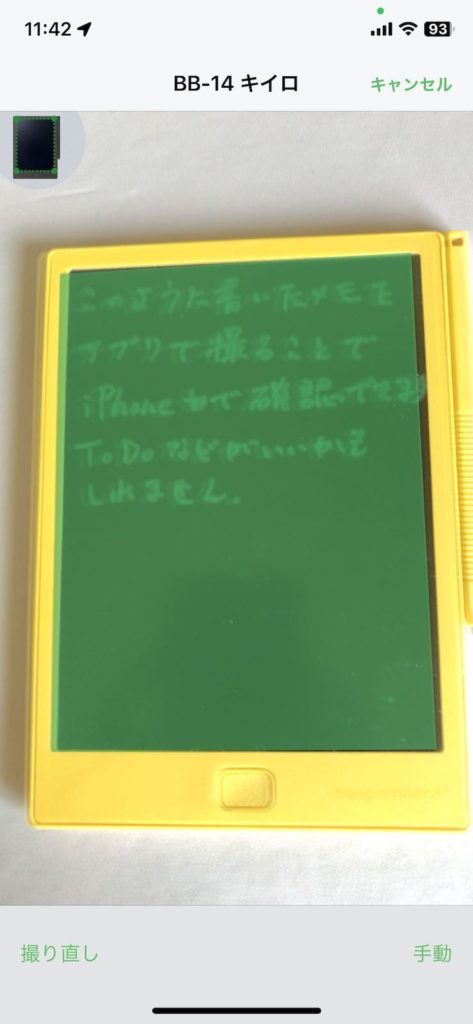 11:42
93
BB-14 キイロ
キャンセル
このように書いたメモを
アプリで撮ることで
iPhone 内で確認できます
ToDoなどがいいかも
しれません。
撮り直し
手動